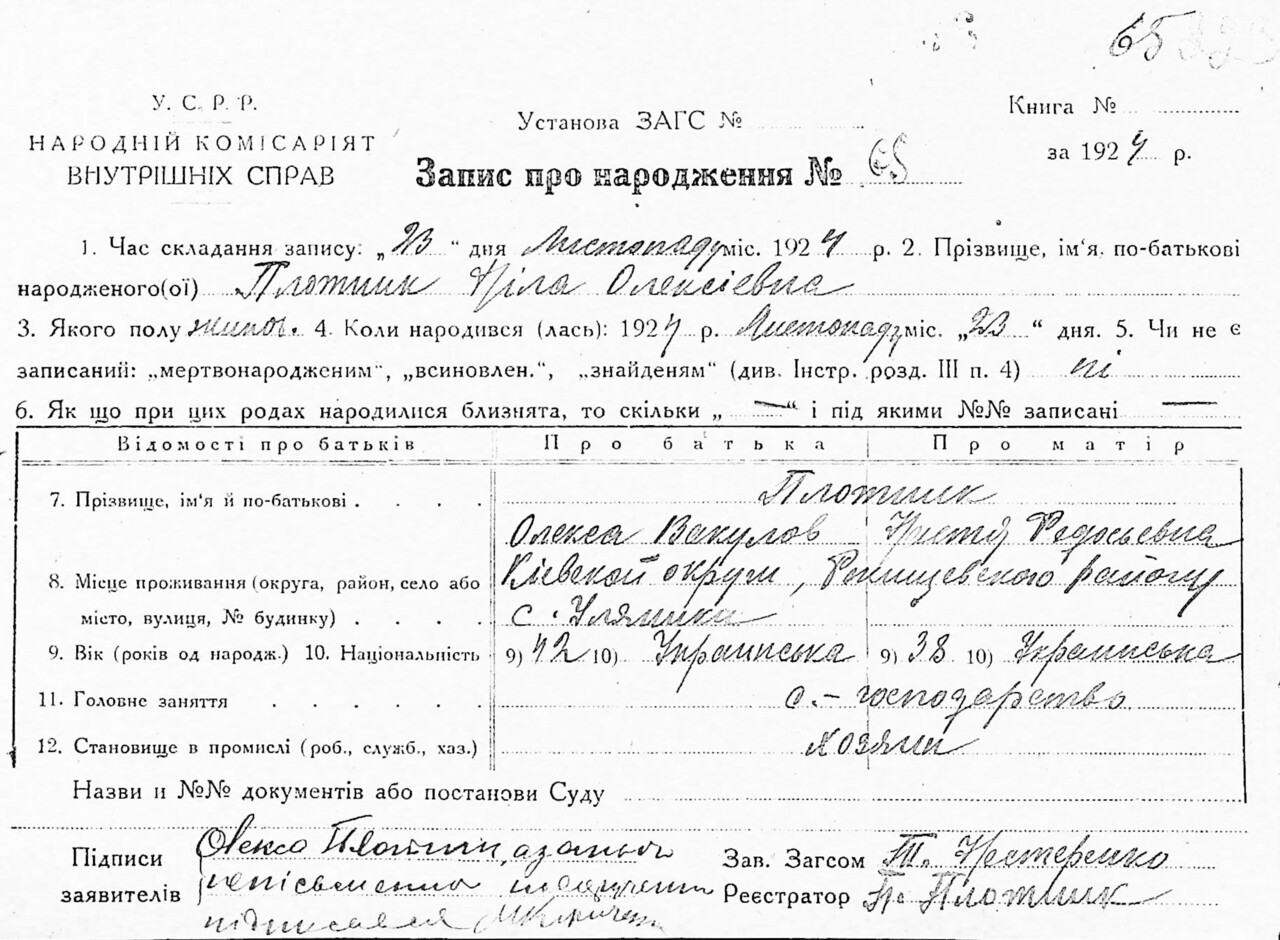 65
У. С. Р. Р.
НАРОДНІЙ КОМІСАРІЯТ
ВНУТРІШНІХ СПРАВ
Установа ЗАГС №
Книга №
за 1924 р.
Запис про народження № 65
1. Час складання запису: „23“ дня Листопаду міс. 1924 р. 2. Прізвище, ім'я. по-батькові
народженого(ої) Плотник Ніла Олексієвна
3. Якого полу жиноч. 4. Коли народився (лась): 1924 р. Листопаду міс. „23“ дня. 5. Чи не є
записаний: „мертвонародженим“, „всиновлен.“, „знайденям“ (див. Інстр. розд. III п. 4) ні
6. Як що при цих родах народилися близнята, то скільки „ — “ і під якими №№ записані —
Відомості про батьків Про батька Про матір
7. Прізвище, ім'я й по-батькові . . . . Плотник
Олекса Вакулов Христя Федосьевна
8. Місце проживання (округа, район, село або Київской округи, района
місто, вулиця, № будинку) . . . . с. Уляники
9. Вік (років од народж.) 10. Національність 9) 42 10) Украинська 9) 38 10) Украинська
11. Головне заняття . . . . . . с.-господарство
12. Становище в промислі (роб., служб., хаз.) хозяин
Назви и №№ документів або постанови Суду
Підписи Олекса Плотник, а за
заявителів непісьменна
підписался
Зав. Загсом Нестеренко
Реєстратор Плотник